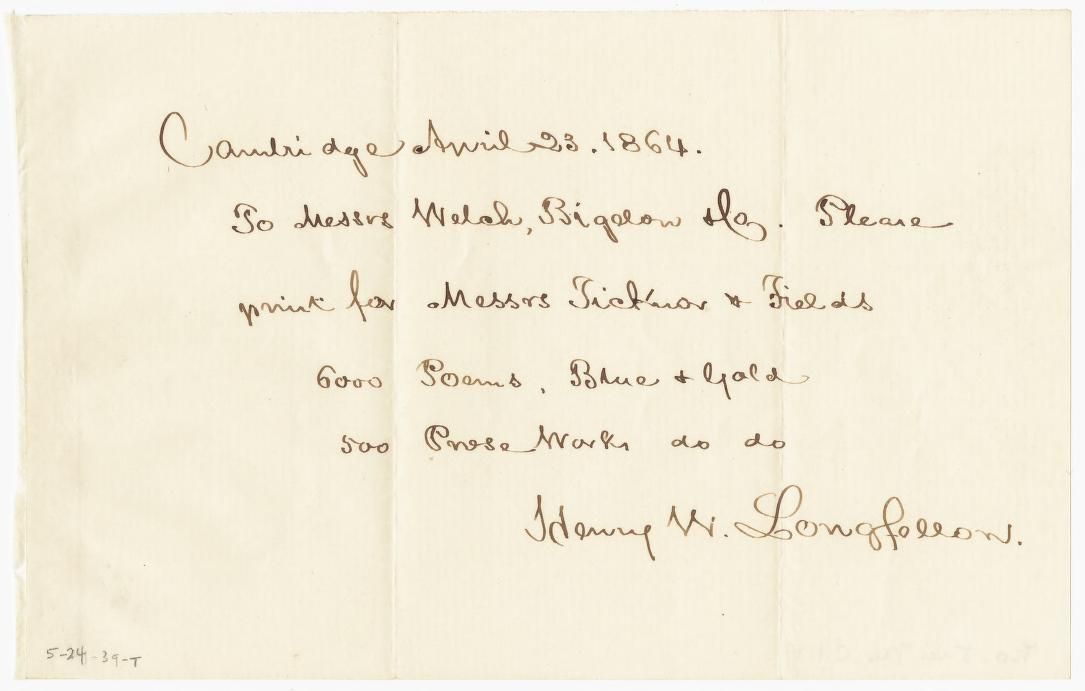 Cambridge April 23. 1864.
To Messrs Welch, Bigelow & Co. Please
print for Messrs Ticknor & Fields
6000 Poems, Blue & Gold
500 Prose Works do do
Henry W. Longfellow.
5-24-39-T